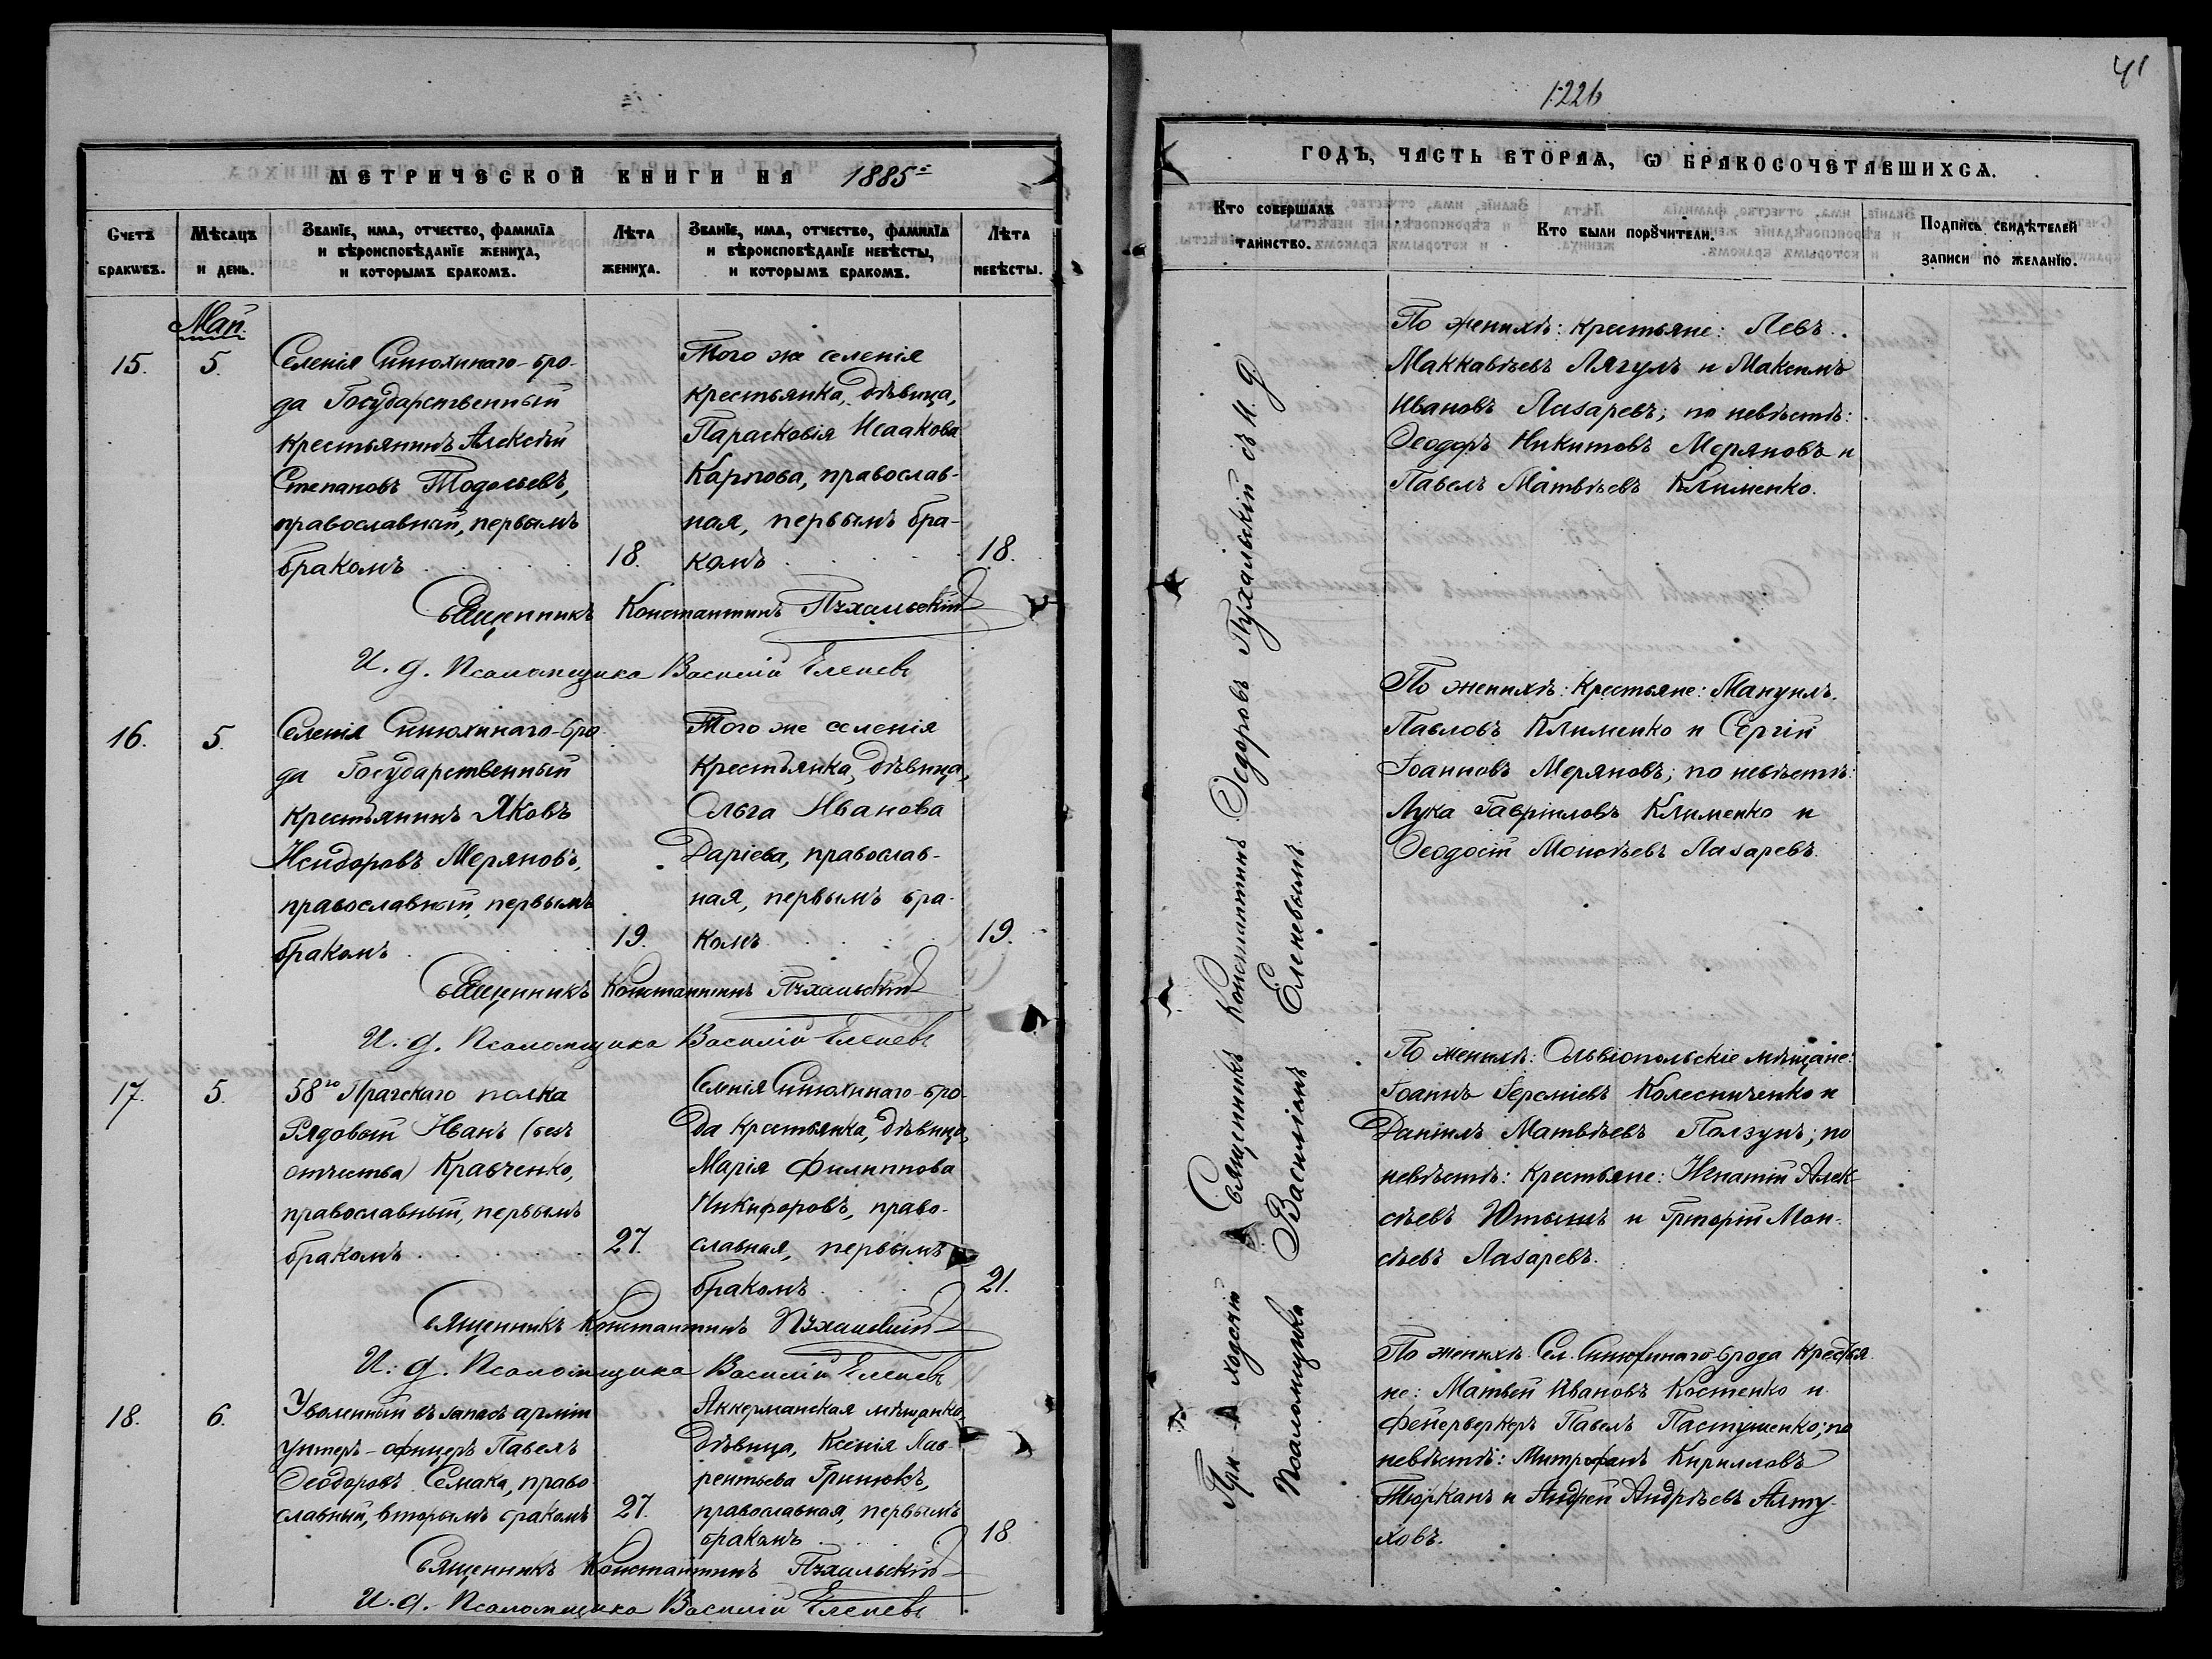 МЕТРИЧЕСКОЙ КНИГИ НА 1885
Счетъ браковъ.
Мѣсяцъ и день.
Званіе, имя, отчество, фамилія
и вѣроисповѣданіе жениха,
и которымъ бракомъ.
Лѣта жениха.
Званіе, имя, отчество, фамилія
и вѣроисповѣданіе невѣсты,
и которымъ бракомъ.
Лѣта невѣсты.
Май.
15.
5.
Селенія Синюхинаго-бро-
да Государственный
крестьянинъ Алексѣй
Степановъ
православный, первымъ
бракомъ
18.
Того же селенія
крестьянка, дѣвица,
Парасковія Исаакова
Карпова, православ-
ная, первымъ бра-
комъ
18.
Священникъ Константинъ Пухальскій
И. д. Псаломщика Василій Еленевъ
16.
5.
Селенія Синюхинаго-бро
да Государственный
крестьянинъ Яковъ
Исидоровъ Меряновъ,
православный, первымъ
бракомъ
19.
Того же селенія
крестьянка, дѣвица,
Ольга Иванова
Даріева, православ-
ная, первымъ бра-
комъ
19.
Священникъ Константинъ Пухальскій
И. д. Псаломщика Василій Еленевъ
17.
5.
58го Прагскаго полка
Рядовый Иванъ (безъ
отчества) Кравченко,
православный, первымъ
бракомъ
27.
Селенія Синюхинаго-бро-
да крестьянка, дѣвица,
Марія Филиппова
Никифоровъ, право-
славная, первымъ
бракомъ
21.
Священникъ Константинъ Пухальскій
И. д. Псаломщика Василій Еленевъ
18.
6.
Уволенный въ запасъ арміи
унтеръ-офицеръ Павелъ
Ѳеодоровъ Семака, право
славный, вторымъ бракомъ
27.
Аккерманская мѣщанка,
дѣвица, Ксенія Лав-
рентьева Гринюкъ,
православная, первымъ
бракомъ
18
Священникъ Константинъ Пухальскій
И. д. Псаломщика Василій Еленевъ
41
1226
ГОДЪ, ЧАСТЬ ВТОРАЯ, Ѡ БРАКОСОЧЕТАВШИХСЯ.
Кто совершалъ таинство.
Кто были поручители.
Подпись свидѣтелей
записи по желанію.
Приходскій Священникъ Константинъ Ѳедоровъ Пухальскій съ И. д.
Псаломщика Василіемъ Еленевымъ
По женихѣ: крестьяне: Левъ
Маккавѣевъ Лягулъ и Максимъ
Ивановъ Лазаревъ; по невѣстѣ:
Ѳеодоръ Никитовъ Меряновъ и
Павелъ Матвѣевъ Клименко.
По женихѣ: крестьяне: Мануилъ
Павловъ Клименко и Сергій
Іоанновъ Меряновъ; по невѣстѣ:
Лука Гавріиловъ Клименко и
Ѳеодосій Моисѣевъ Лазаревъ.
По женихѣ: Ольвіопольскіе мѣщане:
Іоаннъ Іереміевъ Колесниченко и
Даніилъ Матвѣевъ Ползунъ; по
невѣстѣ: крестьяне: Игнатій Алек-
сѣевъ Ютышъ и Григорій Мои-
сѣевъ Лазаревъ.
По женихѣ Сел. Синюхинаго-брода крестья
не: Матвѣй Ивановъ Костенко и
фейерверкеръ Павелъ Пастушенко; по
невѣстѣ: Митрофанъ Кирилловъ
Тюрканъ и Андрей Андрѣевъ Алту-
ховъ.